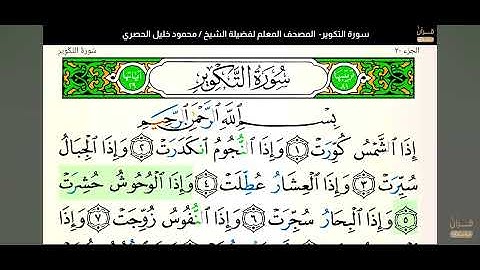 سورة التكوير- المصحف المعلم لفضيلة الشيخ / محمود خليل الحصري
سُورَة التَّكْوِير
الجزء ٣٠
سُورَةُ التَّكْوِيرِ
بِسْمِ اللَّهِ الرَّحْمَٰنِ الرَّحِيمِ
إِذَا الشَّمْسُ كُوِّرَتْ ١ وَإِذَا النُّجُومُ انكَدَرَتْ ٢ وَإِذَا الْجِبَالُ
سُيِّرَتْ ٣ وَإِذَا الْعِشَارُ عُطِّلَتْ ٤ وَإِذَا الْوُحُوشُ حُشِرَتْ
٥ وَإِذَا الْبِحَارُ سُجِّرَتْ ٦ وَإِذَا النُّفُوسُ زُوِّجَتْ ٧ وَإِذَا